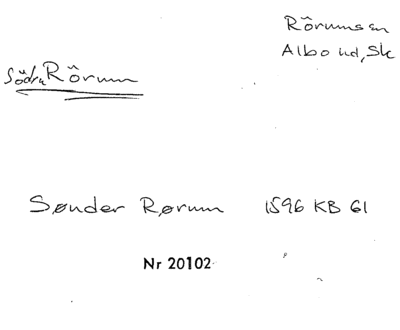 Rörums sn
Albo hd, Sk
Södra Rörum
Sønder Rørum 1596 KB 61
Nr 20102